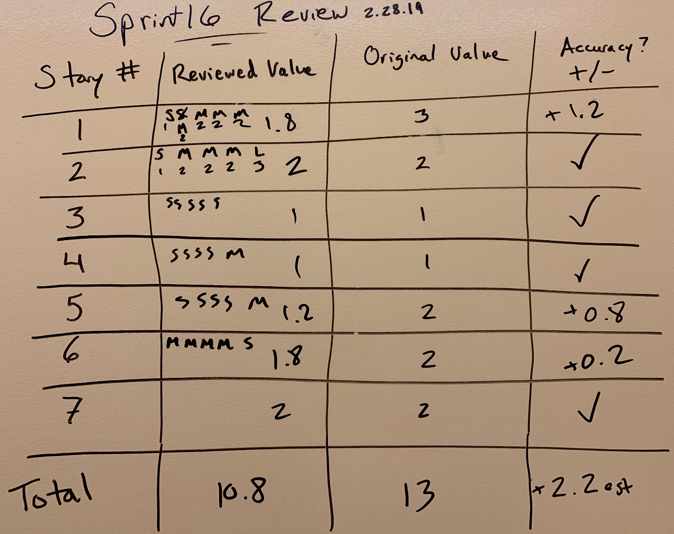 Sprint 16 Review 2.28.19
Story # Reviewed Value Original Value Accuracy? +/-
1 S M M M 1.8 3 +1.2
1 M 2 2 2
2
2 S M M M L 2 2 ✓
1 2 2 2 3
3 S S S S S 1 1 ✓
4 S S S S M 1 1 ✓
5 S S S S M 1.2 2 +0.8
6 M M M M S 1.8 2 +0.2
7 2 2 ✓
Total 10.8 13 +2.2 est